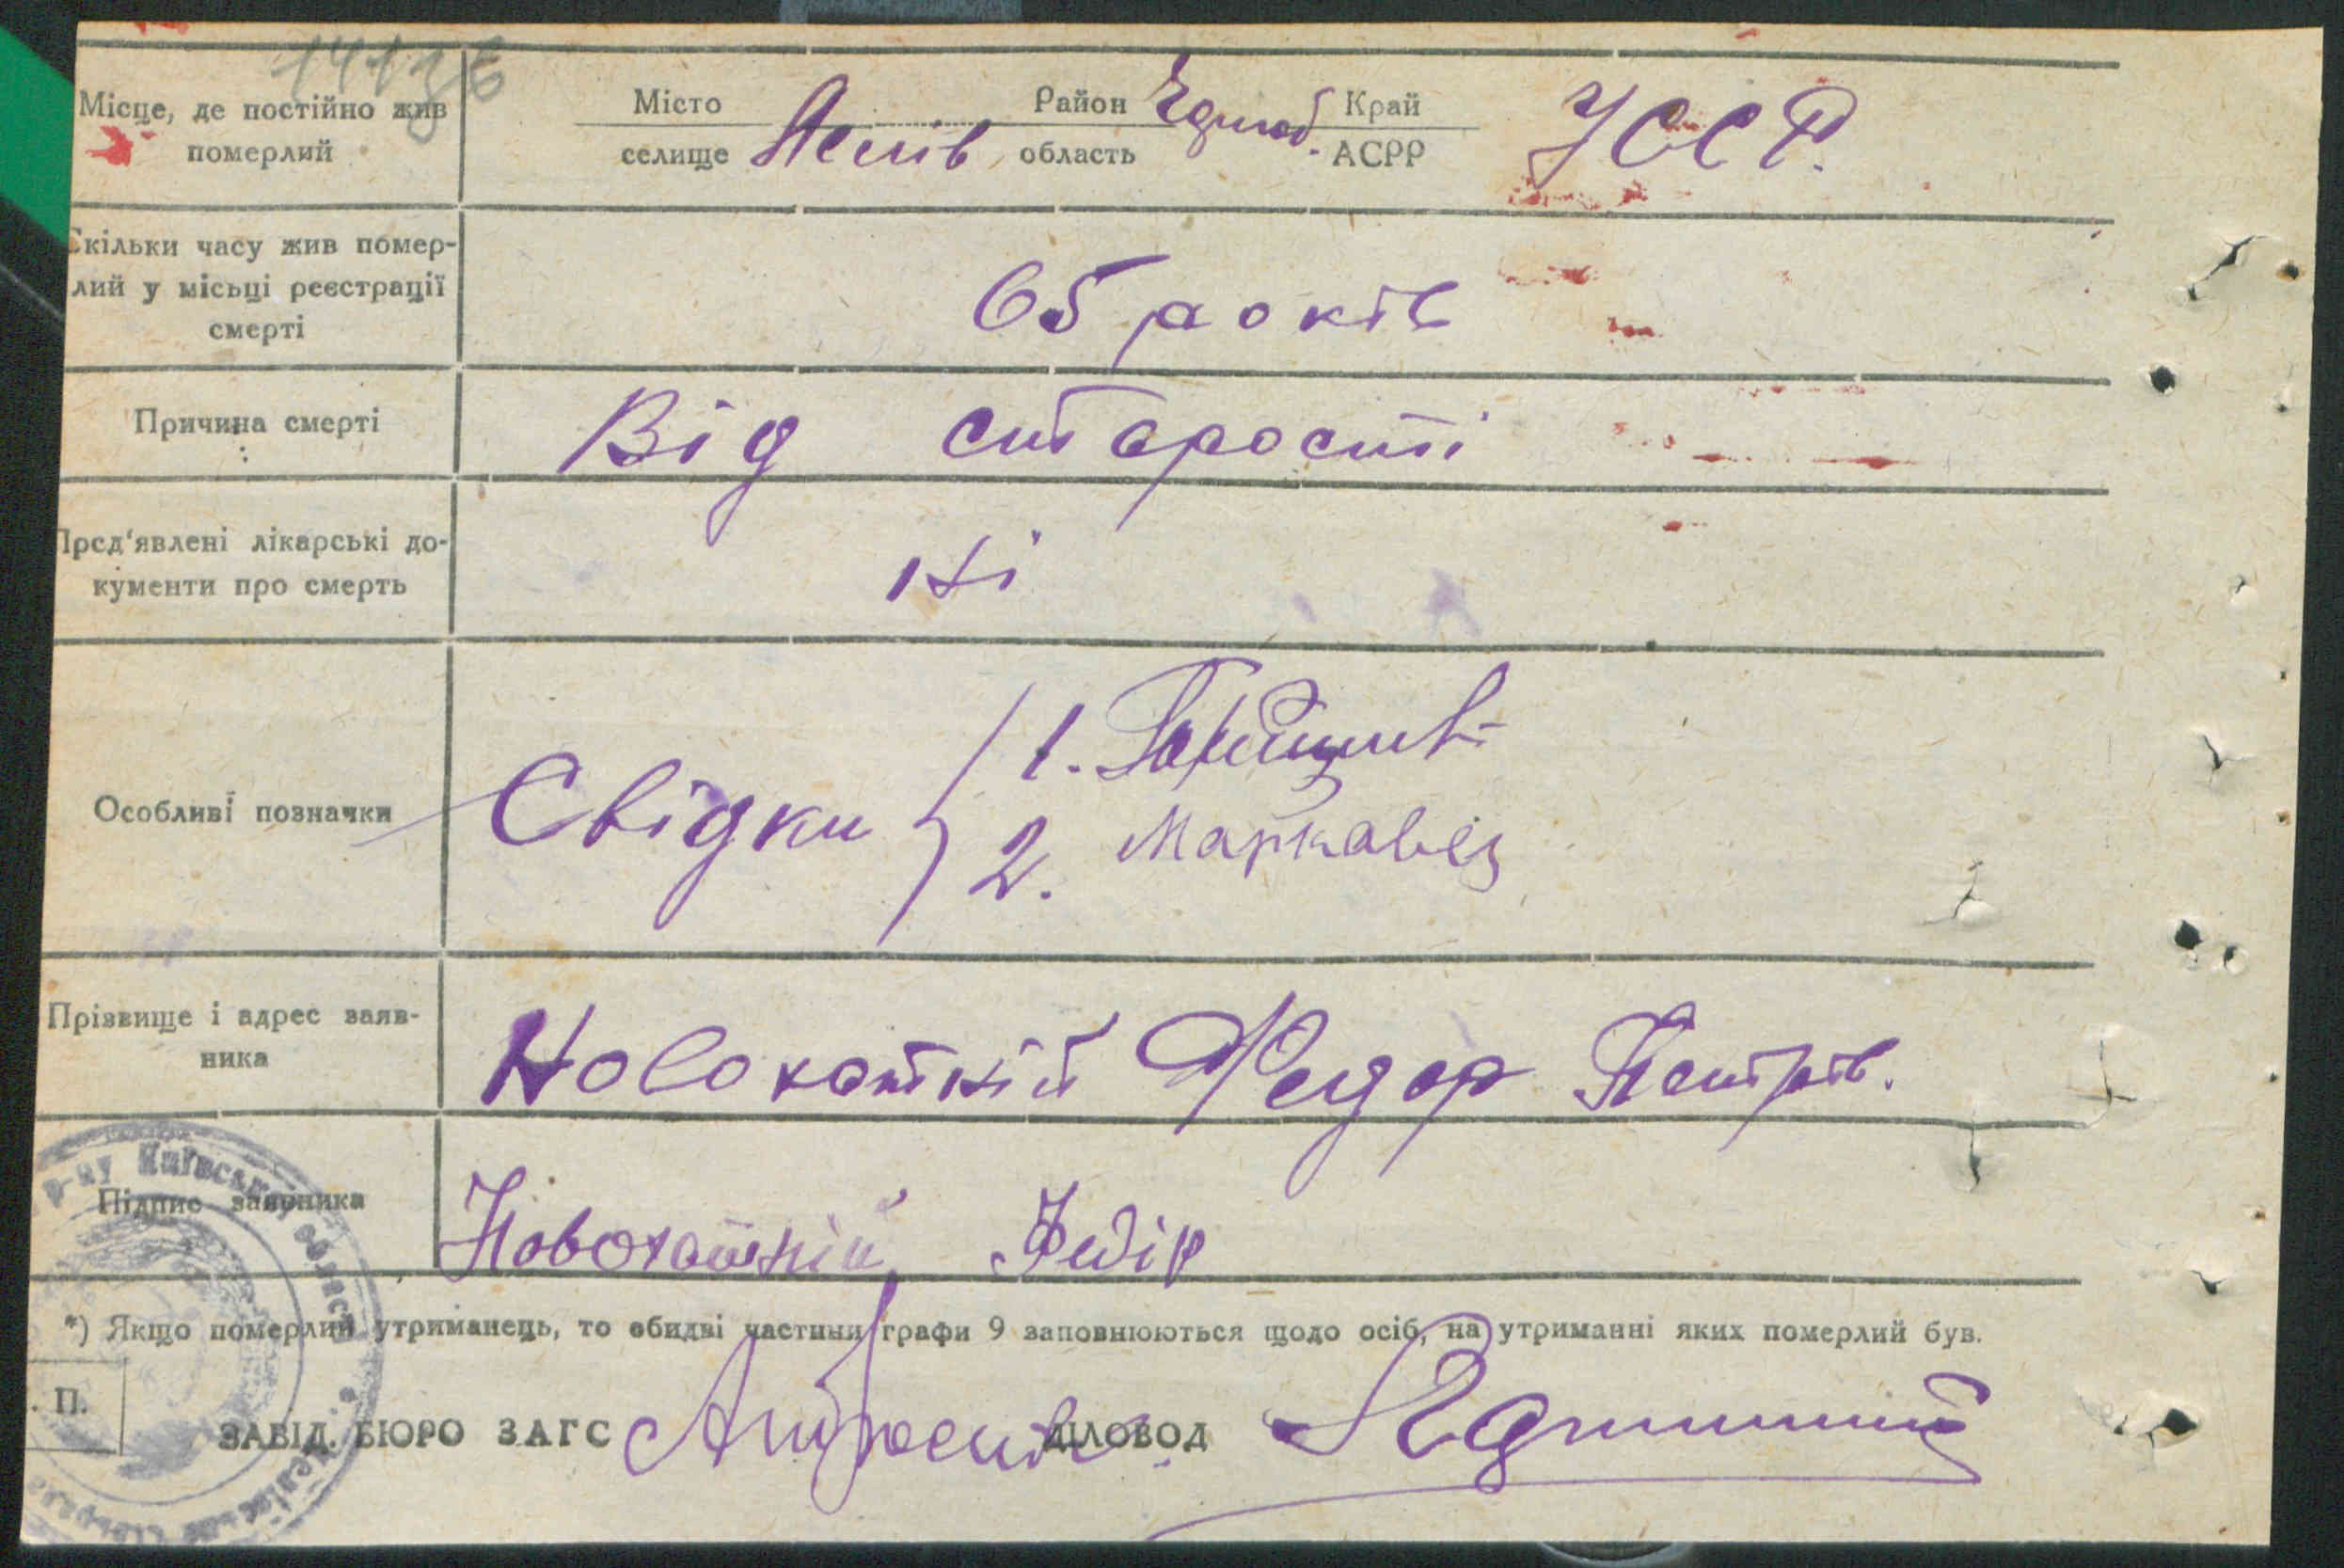 Місце, де постійно жив
померлий
Місто Район Край
селище область АСРР
УССР.
Скільки часу жив помер-
лий у місьці реєстрації
смерті
65 років
Причина смерті
Від старости
Пред'явлені лікарські до-
кументи про смерть
ні
Особливі позначки
Свідки
1.
2.
Прізвище і адрес заяв-
ника
Новохатній Федор Петров.
Підпис заявника
Новохатній Федір
*) Якщо померлий утриманець, то обидві частини графи 9 заповнюються щодо осіб, на утриманні яких померлий був.
. П.
ЗАВІД. БЮРО ЗАГС ДІЛОВОД
р-ну Київської області